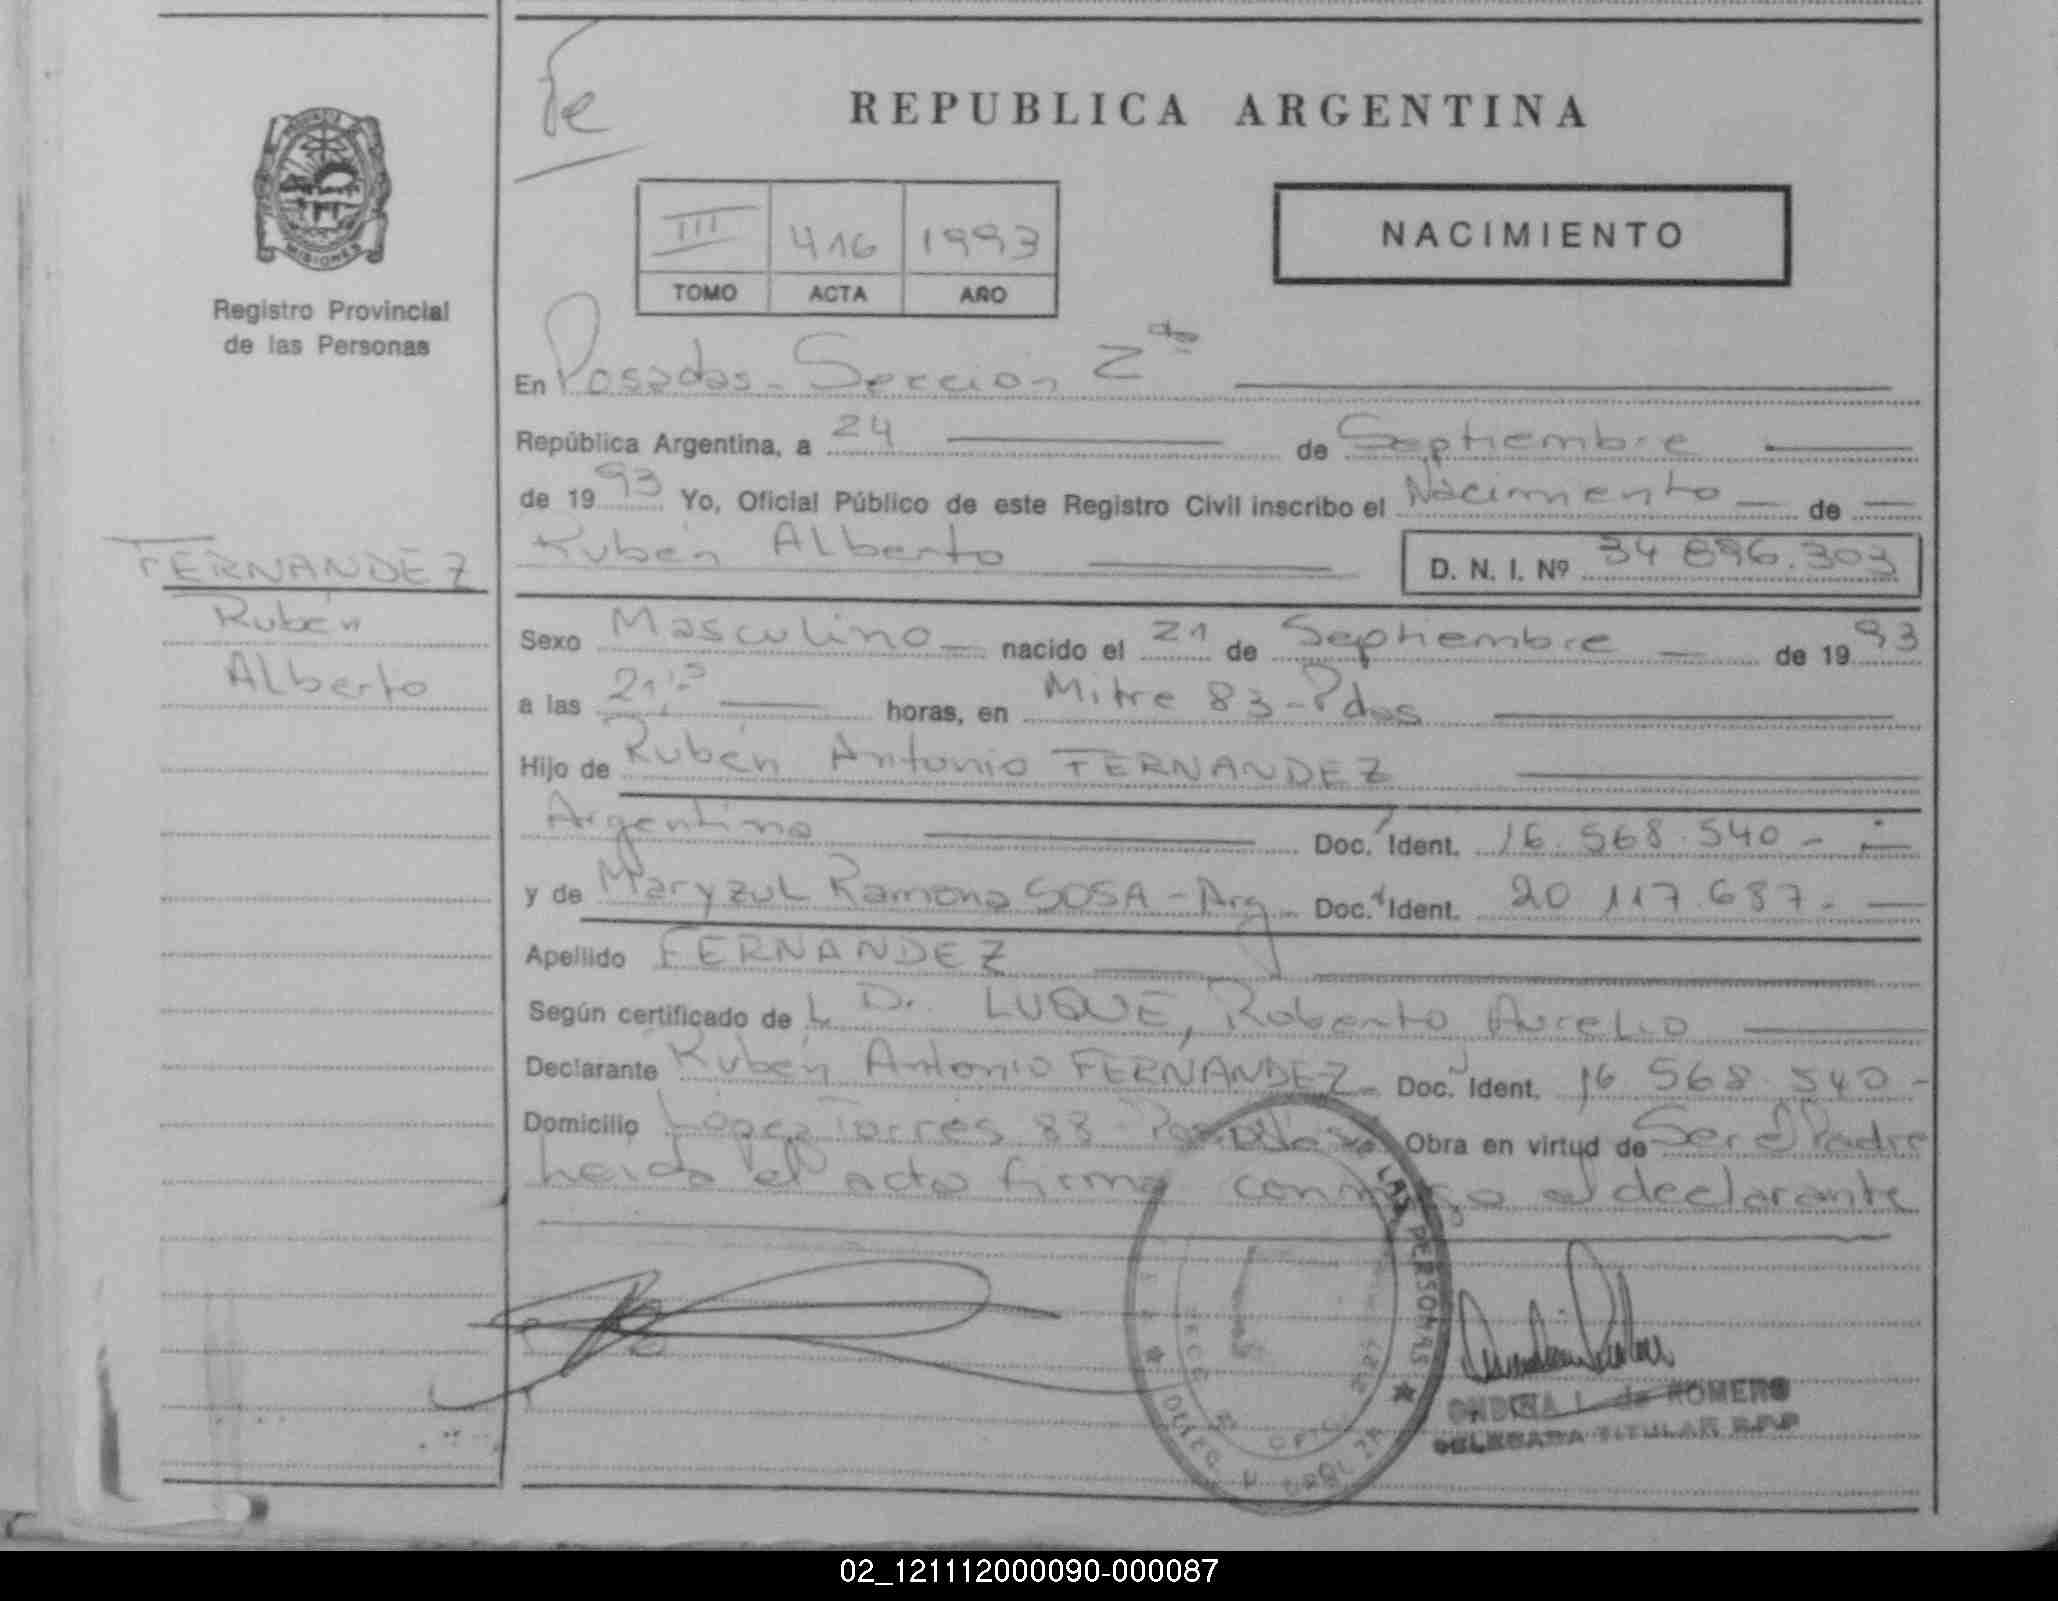 Te
REPUBLICA ARGENTINA
MISIONES
Registro Provincial
de las Personas
III 416 1993
TOMO ACTA AÑO
NACIMIENTO
En Posadas - Seccion 2da
República Argentina, a 24 de Septiembre
de 1993 Yo, Oficial Público de este Registro Civil inscribo el Nacimiento de
Rubén Alberto D. N. I. Nº 34 896.303
FERNANDEZ
Rubén
Alberto
Sexo Masculino nacido el 21 de Septiembre de 1993
a las 21:- horas, en Mitre 83 - Pdas
Hijo de Rubén Antonio FERNANDEZ
Argentino Doc. Ident. 16.568.540 -
y de Maryzul Ramona SOSA - Arg Doc. Ident. 20 117.687 -
Apellido FERNANDEZ
Según certificado de L D. LUQUE, Roberto Aurelio
Declarante Rubén Antonio FERNANDEZ Doc. Ident. 16 568.540 -
Domicilio López Torres 88 - Posadas Obra en virtud de Ser el Padre
heida el acta firma conmigo el declarante
LAS PERSONAS
ONDINA L. de ROMERO
DELEGADA TITULAR R.P.P
02_121112000090-000087